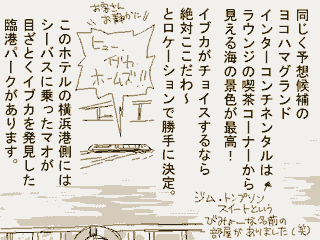 同じく予想候補の
ヨコハマグランド
インターコンチネンタルは
ラウンジの喫茶コーナーから
見える海の景色が最高！
イブカがチョイスするなら
絶対ここだわ〜
とロケーションで勝手に決定。
お客さん
お静かに!!
ヒュー
ホームズ!!
このホテルの横浜港側には
シーバスに乗ったマオが
目ざとくイブカを発見した
臨港パークがあります。
ジム・トンプソン
スイートという
びみょーな名前の
部屋がありました(笑)